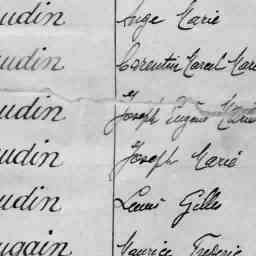 udin Ange Marie
udin Corentin Marcel Mari
udin Joseph Eugène Marie
udin Joseph Marie
udin Louis Gilles
ugain Maurice Frédéric